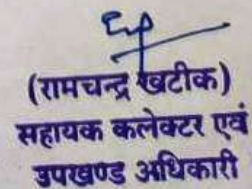 (रामचन्द्र खटीक)
सहायक कलेक्टर एवं
उपखण्ड अधिकारी